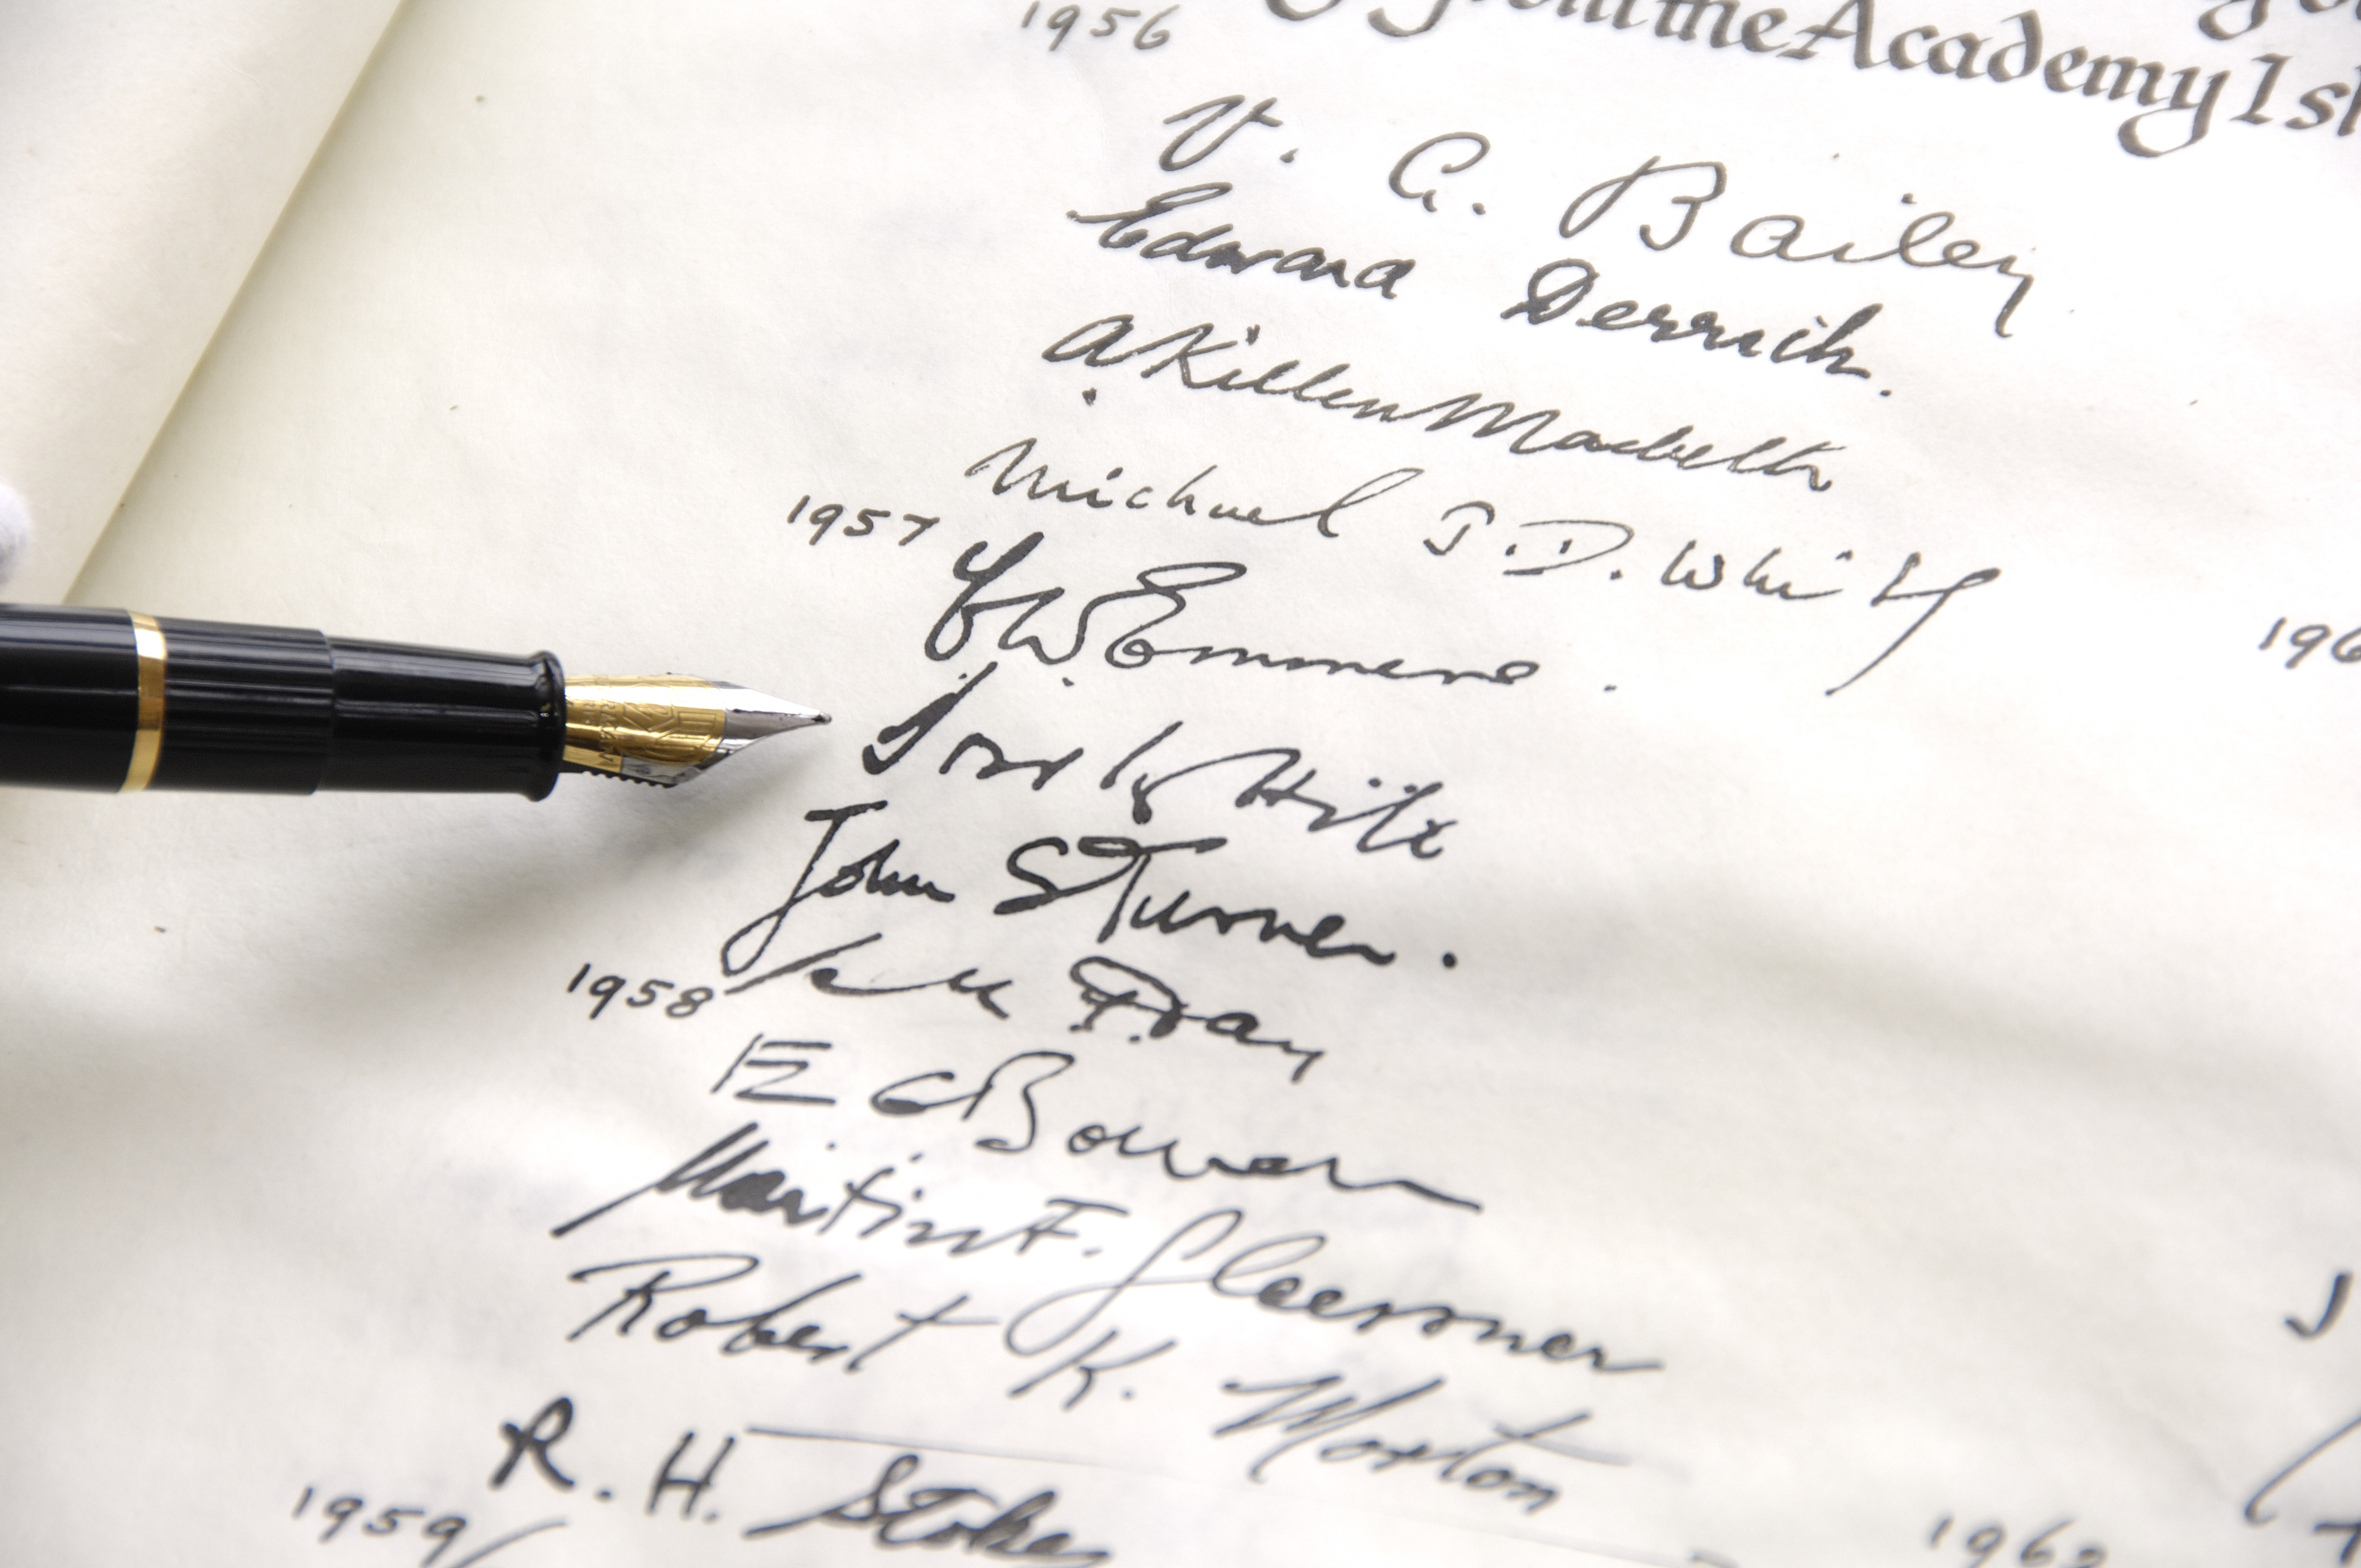 from the Academy
1956
V. A. Bailey
Edward Derrick.
A Killen Macbeth
Michael J. D. White
1957
W Emmens.
John S Turner.
1958
Fray
E G Bowen
Martin F. Glaessner
Robert K. Morton
R. H. Stokes
1959
196
1962